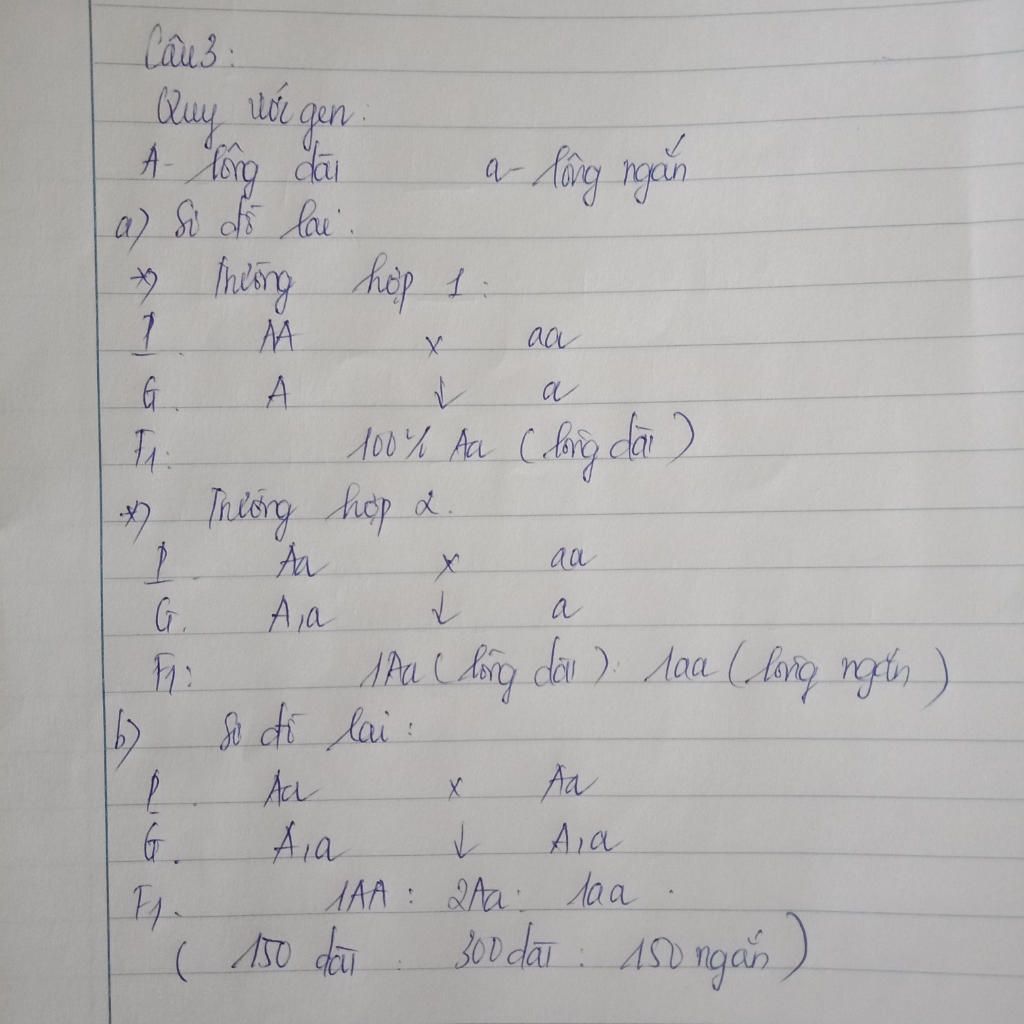 Câu 3:
Quy ước gen:
A- lông dài a- lông ngắn
a) Sơ đồ lai:
*) Trường hợp 1:
P. AA x aa
G. A ↓ a
F1: 100% Aa (lông dài)
*) Trường hợp 2.
P. Aa x aa
G. A,a ↓ a
F1: 1Aa (lông dài): 1aa (lông ngắn)
b) Sơ đồ lai:
P. Aa x Aa
G. A,a ↓ A,a
F1. 1AA : 2Aa: 1aa.
( 150 dài : 300 dài : 150 ngắn)